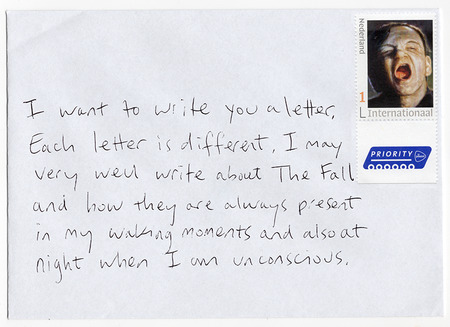 Nederland
1
L Internationaal
PRIORITY
I want to write you a letter.
Each letter is different. I may
very well write about The Fall
and how they are always present
in my waking moments and also at
night when I am unconscious.